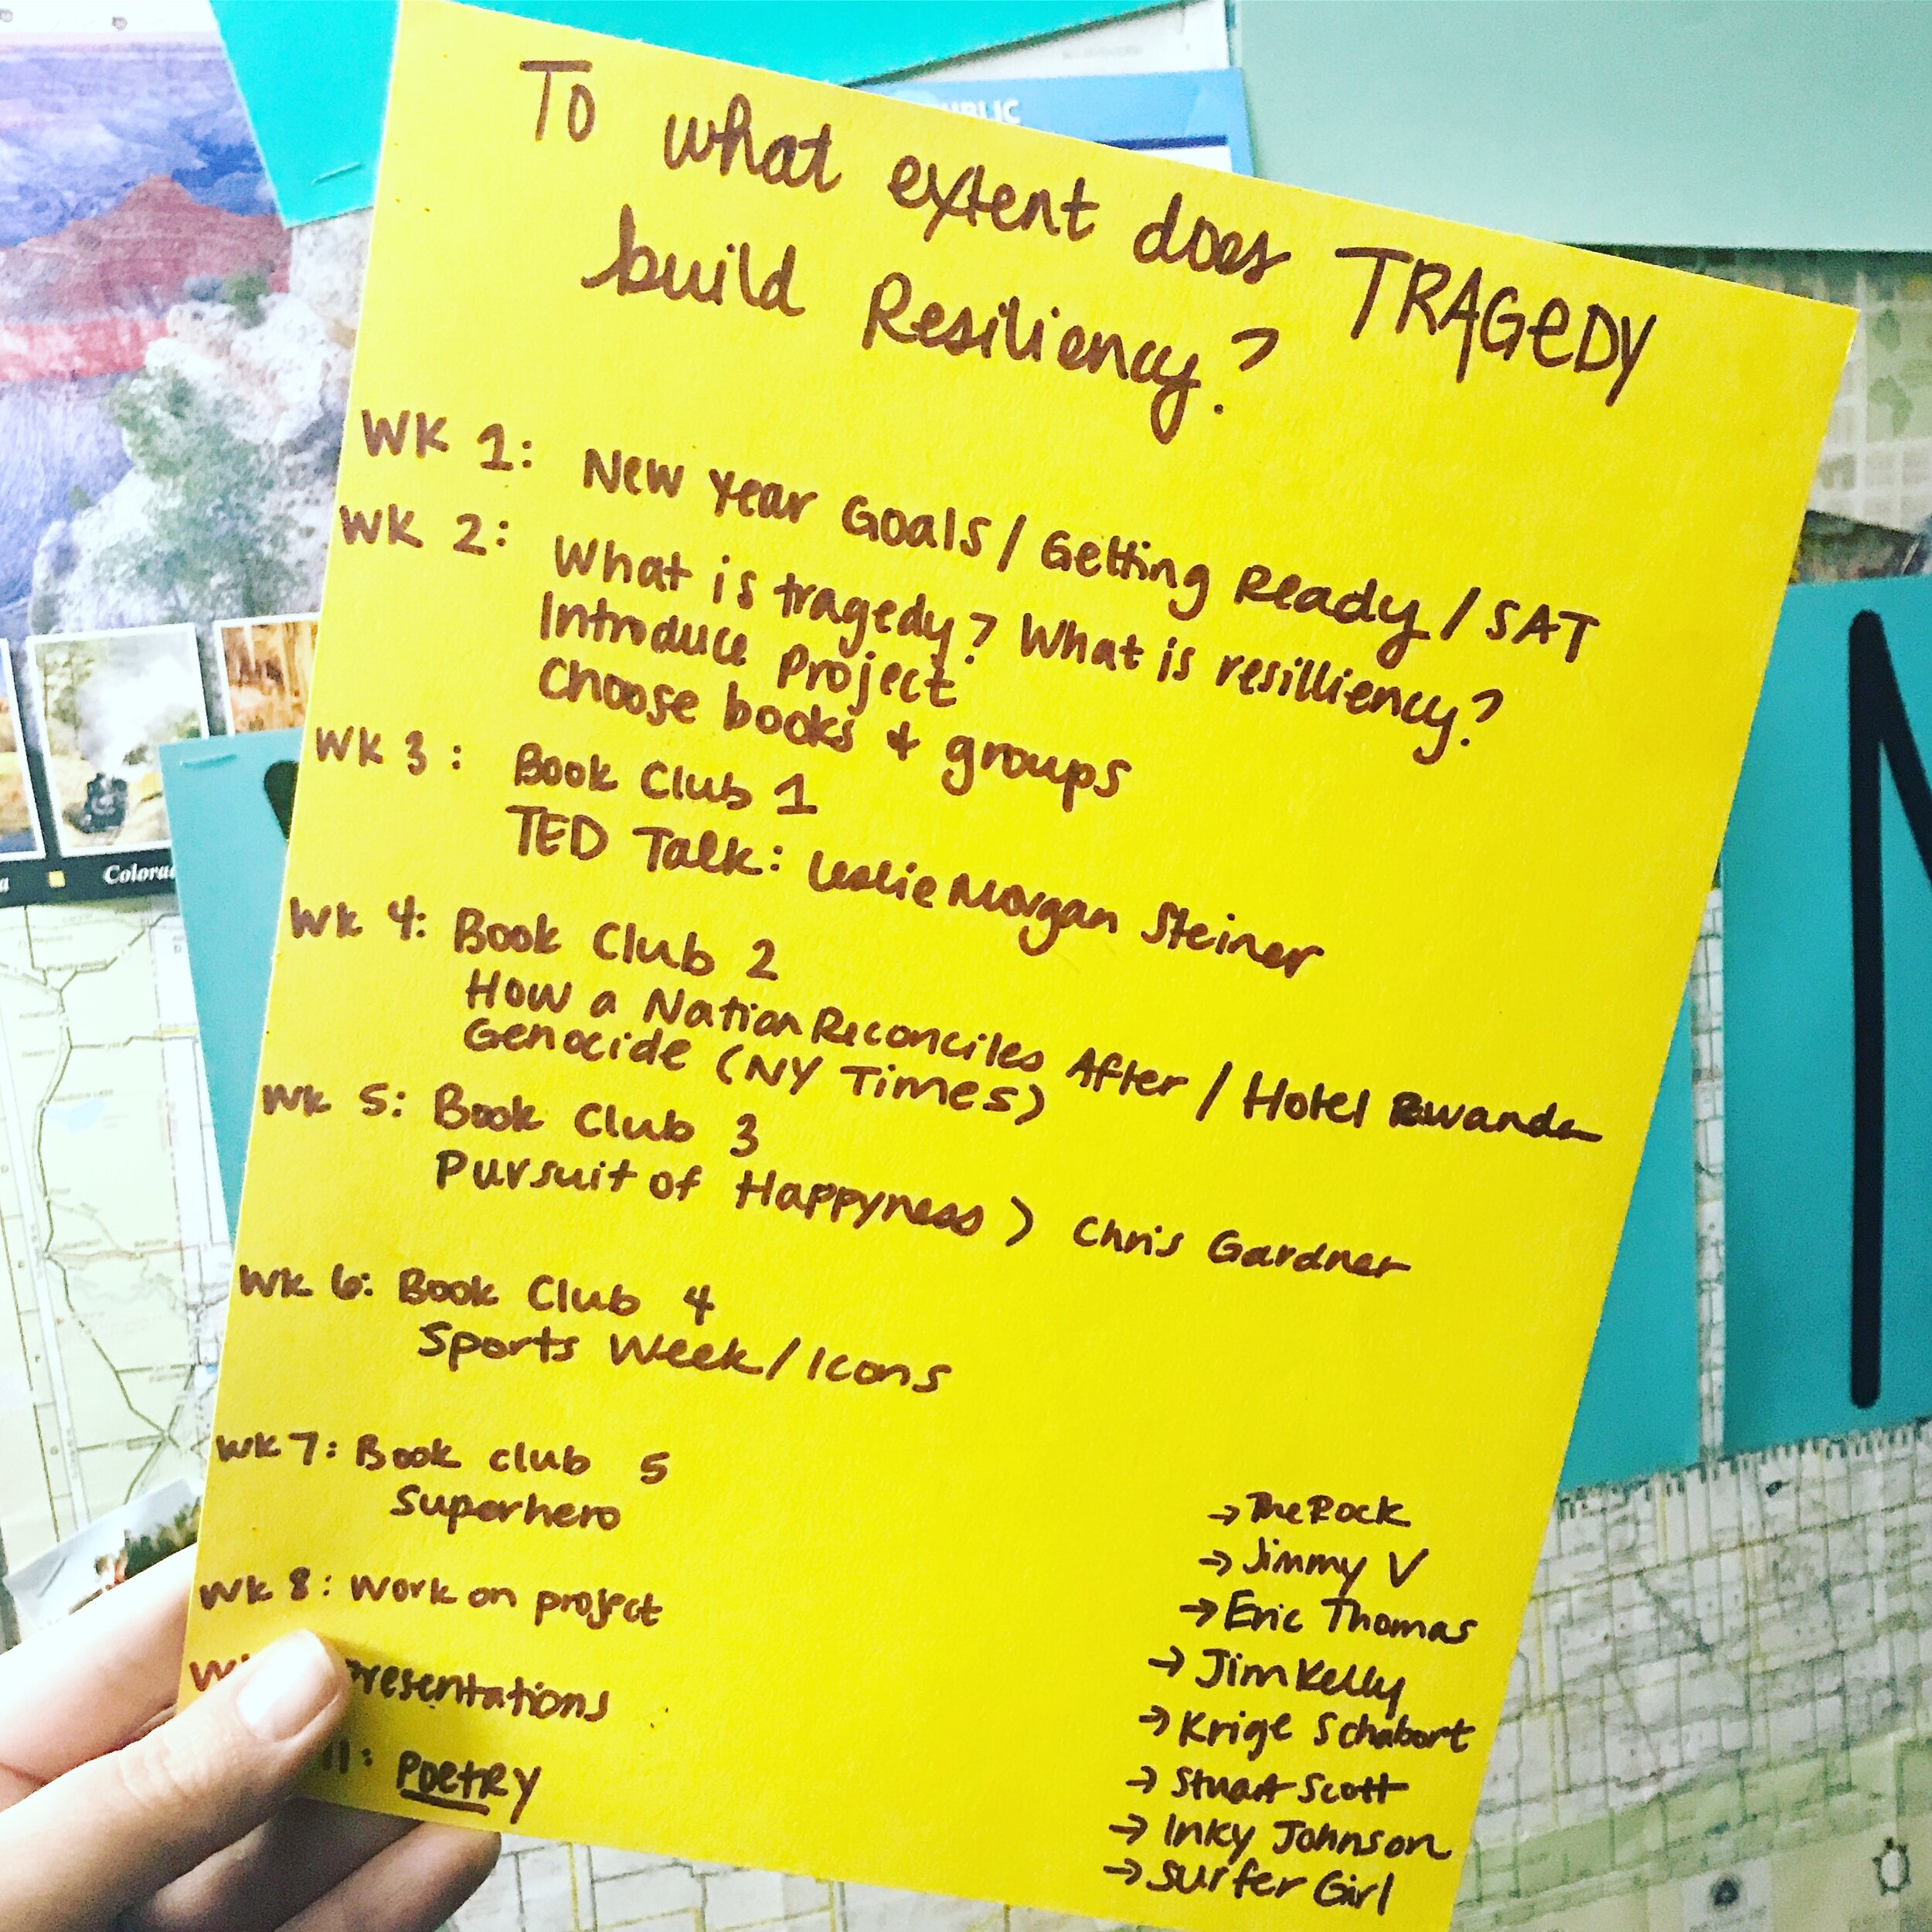 To what extent does TRAGEDY
build Resiliency?
WK 1: New Year Goals / Getting Ready / SAT
WK 2: What is tragedy? What is resilliency?
Introduce Project
Choose books + groups
WK 3: Book Club 1
TED Talk: Leslie Morgan Steiner
Wk 4: Book Club 2
How a Nation Reconciles After / Hotel Rwanda
Genocide (NY Times)
Wk 5: Book Club 3
Pursuit of Happyness > Chris Gardner
Wk 6: Book Club 4
Sports Week / Icons
Wk 7: Book club 5
Superhero
Wk 8: Work on project
Presentations
11: Poetry
→ The Rock
→ Jimmy V
→ Eric Thomas
→ Jim Kelly
→ Krige Schabort
→ Stuart Scott
→ Inky Johnson
→ Surfer Girl